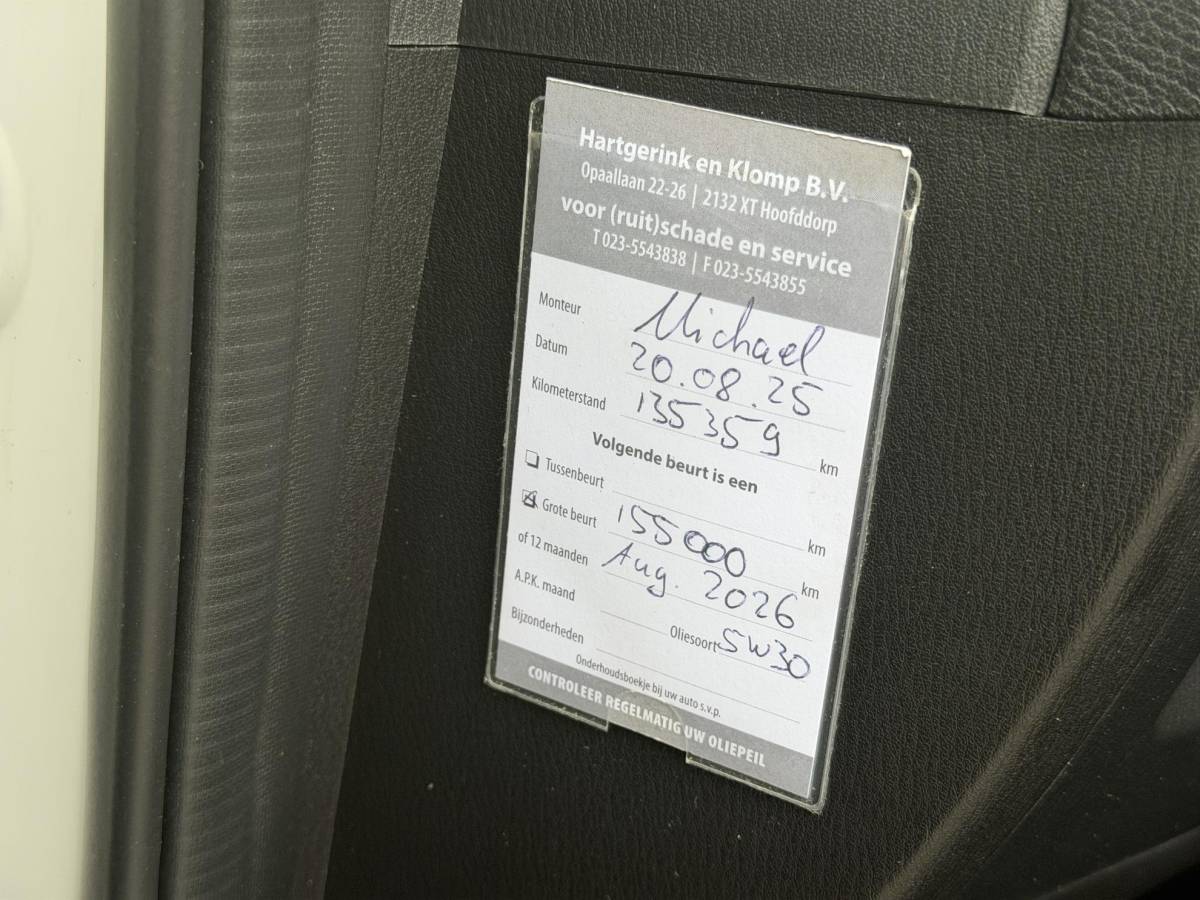 Hartgerink en Klomp B.V.
Opaallaan 22-26 | 2132 XT Hoofddorp
voor (ruit)schade en service
T 023-5543838 | F 023-5543855
Monteur Michael
Datum 20.08.25
Kilometerstand 135359 km
Volgende beurt is een
Tussenbeurt km
Grote beurt 155000 km
of 12 maanden Aug. 2026
A.P.K. maand Oliesoort 5W30
Bijzonderheden
Onderhoudsboekje bij uw auto s.v.p.
CONTROLEER REGELMATIG UW OLIEPEIL